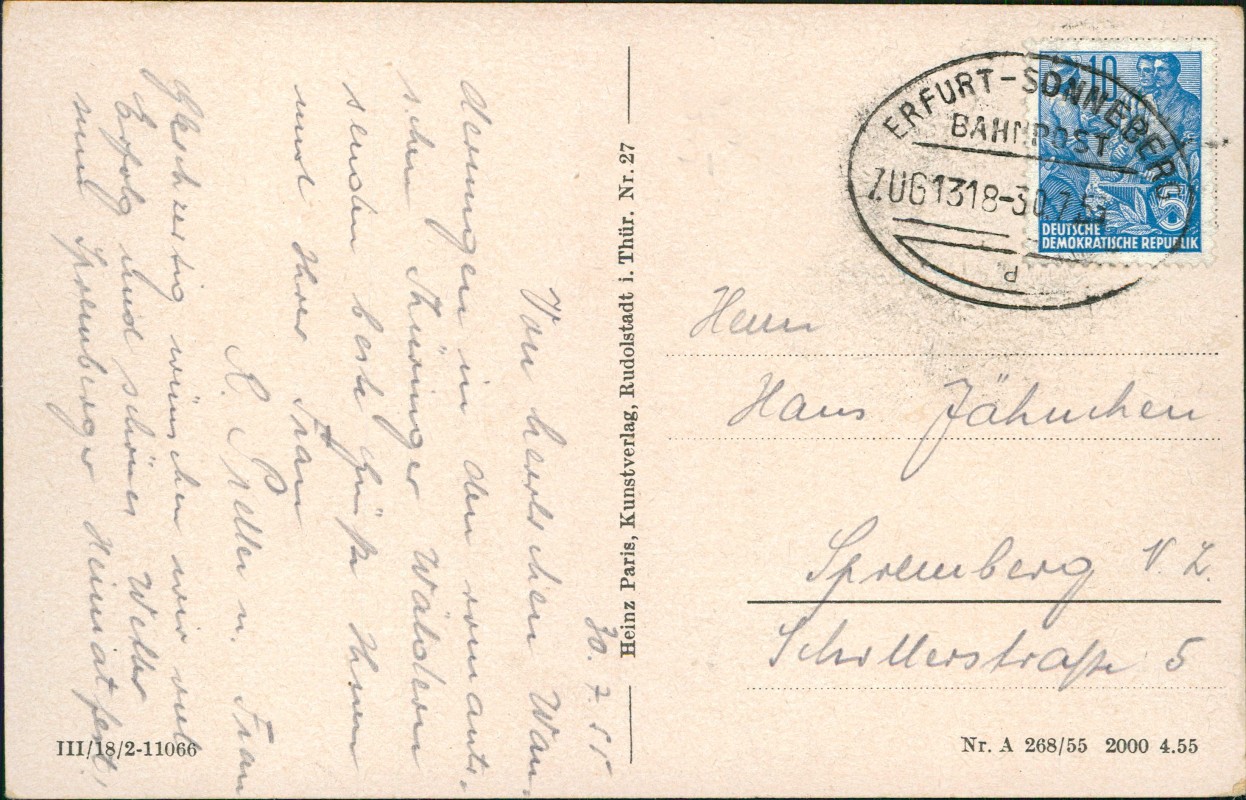 30.7.55
Von herrlichen Wan-
derungen in den romanti-
schen Thüringer Wäldern
senden beste Grüße Ihnen
und Ihrer Frau
A. u. Frau
Gleichzeitig wünschen wir viel
Erfolg und schönes Wetter
zum Spremberger Heimatfest.
III/18/2-11066
Heinz Paris, Kunstverlag, Rudolstadt i. Thür. Nr. 27
ERFURT-SONNEBERG
BAHNPOST
ZUG1318-30.7.55
d
10
5
DEUTSCHE
DEMOKRATISCHE REPUBLIK
Herrn
Hans Jähnchen
Spremberg N. L.
Schillerstraße 5
Nr. A 268/55 2000 4.55